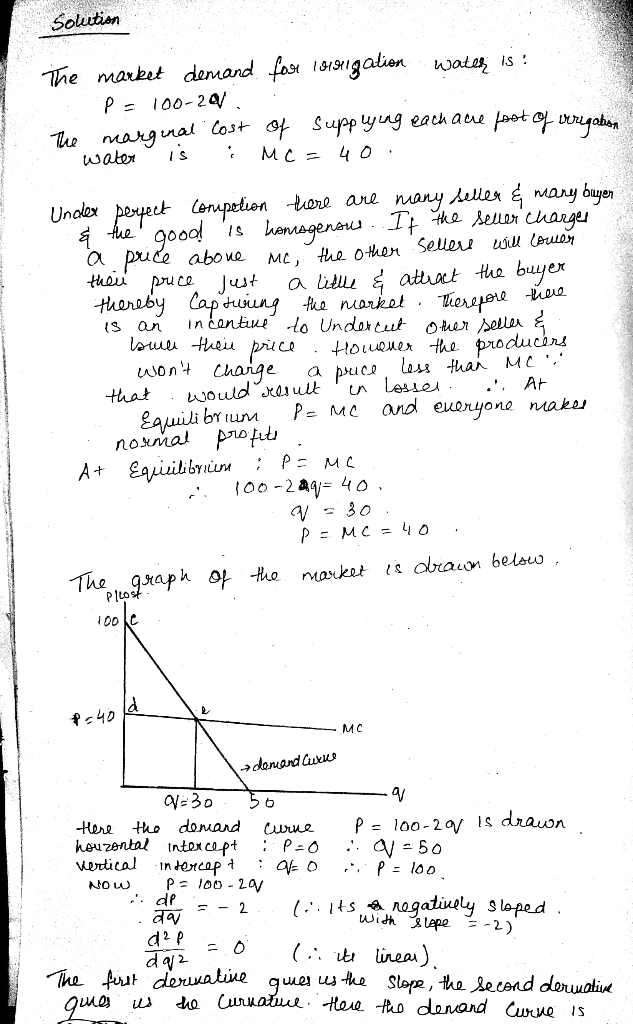 Solution
The market demand for irrigation water is :
P = 100-2q.
The marginal cost of supplying each acre foot of irrigation
water is : MC = 40.
Under perfect competion there are many seller & many buyer
& the good is homogenous. If the seller charges
a price above MC, the other sellers will lower
their price just a little & attract the buyer
thereby capturing the market. Therefore there
is an incentive to undercut other seller &
lower their price. However the producers
won't charge a price less than MC ∵
that would result in losses. ∴ At
Equilibrium P = MC and everyone makes
normal profits
At Equilibrium : P = MC
∴ 100-2q = 40.
q = 30
P = MC = 40.
The graph of the market is drawn below.
P/cost
100 c
P=40 d e
MC
→ demand curve
q=30 50 q
Here the demand curve P = 100-2q is drawn
horizontal intercept : P=0 ∴ q = 50
vertical intercept : q=0 ∴ P = 100.
Now P = 100-2q
∴ dP/dq = -2 (∴ its negatively sloped
with slope = -2)
d2P/dq2 = 0 (∴ its linear).
The first derivative gives us the slope, the second derivative
gives us the curvature. Here the demand curve is